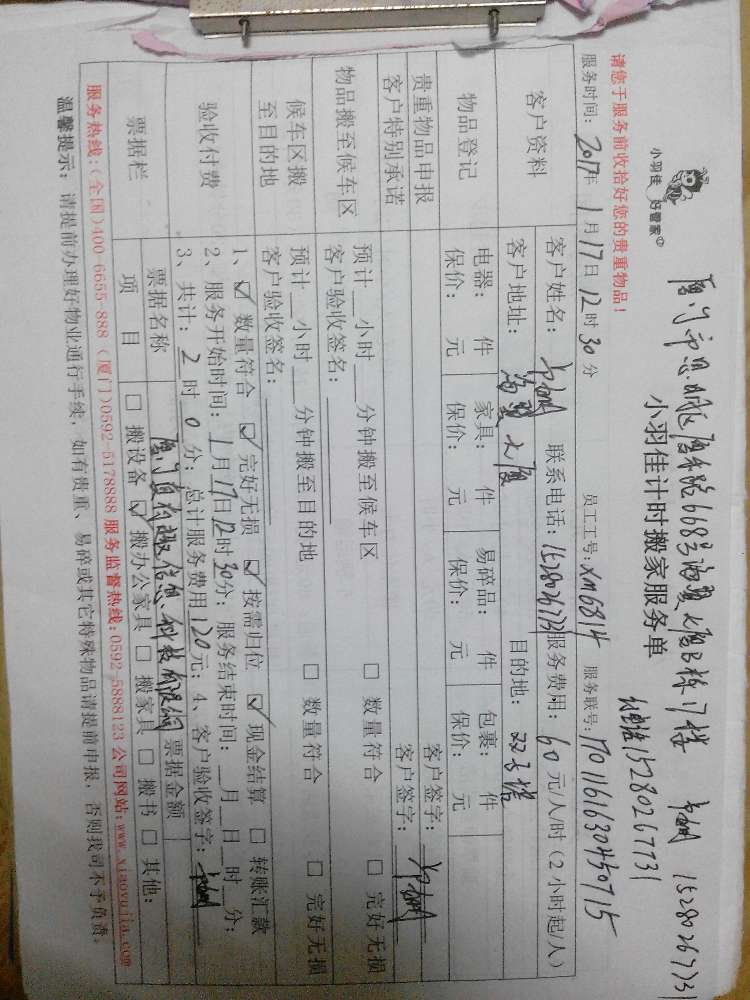 厦门市思明区厦禾路668号海翼大厦B栋17楼 15280267731
小羽佳 好管家
小羽佳计时搬家服务单 15280267731
请您于服务前收拾好您的贵重物品！
服务时间：2017年1月17日12时30分 员工工号：XM6814 服务联号：
客户资料 客户姓名： 联系电话：15280267731 服务费用：60元/人/时（2小时起/人）
客户地址：海翼大厦 目的地：双子塔
物品登记 电器： 件 家具： 件 易碎品： 件 包裹： 件
保价： 元 保价： 元 保价： 元 保价： 元
贵重物品申报 客户签字：
客户特别承诺 客户签字：
物品搬至候车区 预计__小时__分钟搬至候车区 □ 数量符合 □ 完好无损
客户验收签名：
候车区搬至目的地 预计__小时__分钟搬至目的地 □ 数量符合 □ 完好无损
客户验收签名：
验收付费 1、☑ 数量符合 ☑ 完好无损 ☑ 按需归位 ☑ 现金结算 □ 转账汇款
2、服务开始时间：1月17日12时30分；服务结束时间：__月__日__时__分；
3、共计：2时0分；总计服务费用120元；4、客户验收签字：
票据栏 票据名称 票据金额
项目 □ 搬设备 ☑ 搬办公家具 □ 搬家具 □ 搬书 □ 其他：
服务热线：（全国）400-6655-888 （厦门）0592-5178888 服务监督热线：0592-5888123 公司网站：www.xiaoyujia.com
温馨提示：请提前办理好物业通行手续，如有贵重、易碎或其它特殊物品请提前申报，否则我司不予负责。